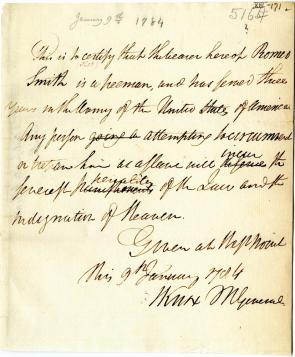 January 9th 1784
5164
This is to certify that the bearer hereof Romeo
Smith is a freeman, and has served three
years in the Army of the United States of America
Any person going & attempting to circumvent
or retain him as a slave will incur
the
severest penalties of the Law and the
indignation of Heaven.
Given at West Point
this 9th January 1784
HKnox MGeneral